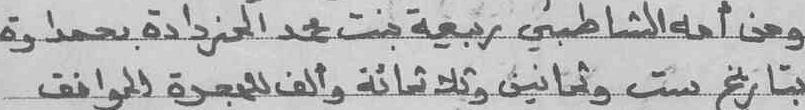 وعن أمه الشاطبي ربيعة بنت محمد الخزدادة بعمداوة
بتاريخ ست وثمانين وثلاثمائة وألف للهجرة الموافق